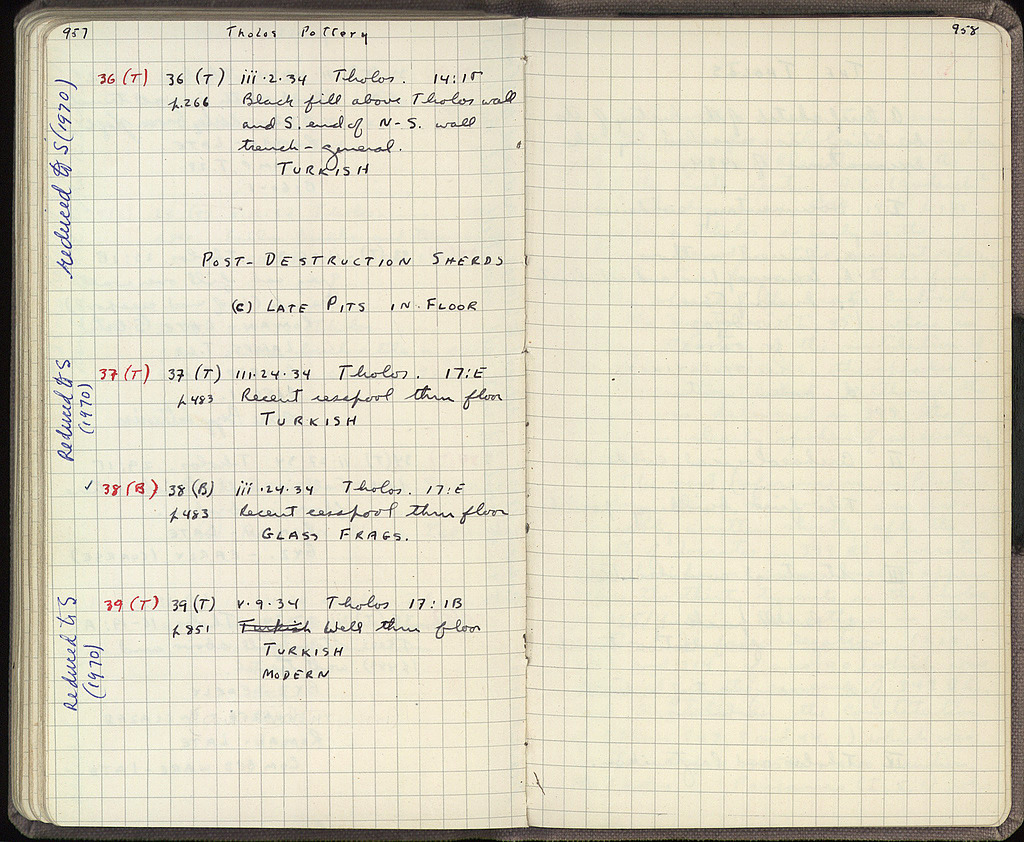 957
Tholos Pottery
958
reduced to S (1970)
36 (T) 36 (T) iii·2·34 Tholos. 14:IΓ
p.266 Black fill above Tholos wall
and S. end of N-S. wall
trench - general.
TURKISH
POST-DESTRUCTION SHERDS
(C) LATE PITS IN FLOOR
Reduced to S
(1970)
37 (T) 37 (T) III·24·34 Tholos. 17:E
p483 Recent cesspool thru floor
TURKISH
✓ 38 (B) 38 (B) iii·24·34 Tholos. 17:E
p483 Recent cesspool thru floor
GLASS FRAGS.
Reduced to S
(1970)
39 (T) 39 (T) v·9·34 Tholos 17:1B
p851 Turkish Well thru floor
TURKISH
MODERN